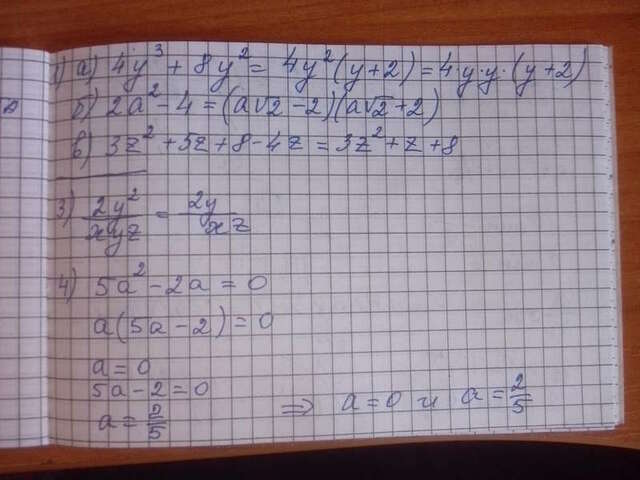 1) а) 4y³ + 8y² = 4y²(y+2) = 4·y·y·(y+2)
б) 2a² - 4 = (a√2 - 2)(a√2 + 2)
в) 3z² + 5z + 8 - 4z = 3z² + z + 8
3) 2y²/xyz = 2y/xz
4) 5a² - 2a = 0
a(5a - 2) = 0
a = 0
5a - 2 = 0
a = 2/5 ⇒ a = 0 и a = 2/5